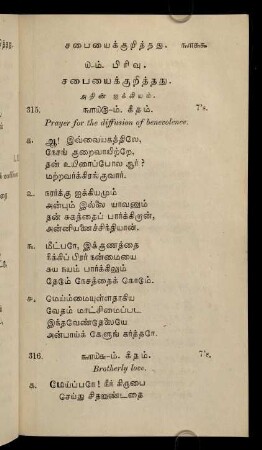 சபையைக்குறித்தது.
௰ம். பிரிவு.
சபையைக்குறித்தது.
அதின் ஐக்கியம்.
315. ௩௱௰௫-ம். கீதம். 7's.
Prayer for the diffusion of benevolence.
௧. ஆ! இவ்வையகத்திலே,
நேசங் குறைவாயிற்றே,
தன் உயிரைப்போல ஆர்?
மற்றவர்க்கிரங்குவார்.
௨. நரர்க்கு ஐக்கியமும்
அன்பும் இல்லை யாவனும்
தன் சுகத்தைப் பார்க்கிறான்,
அன்னியனைச்சிந்தியான்.
௩. மீட்பரே, இக்குணத்தை
நீக்கிப் பிறர் நன்மையை
சுய நயம் பார்க்கிலும்
தேடும் நேசத்தைக் கொடும்.
௪. மெய்ம்மையுள்ளதாகிய
வேதம் மாட்சிமைப்பட
இந்தவேண்டுதலையே
அன்பாய்க் கேளுங் கர்த்தரே.
316. ௩௱௰௬-ம். கீதம். 7's.
Brotherly love.
௧. மேய்ப்பரே! நீர் கிருபை
செய்து சிதறுண்டதை